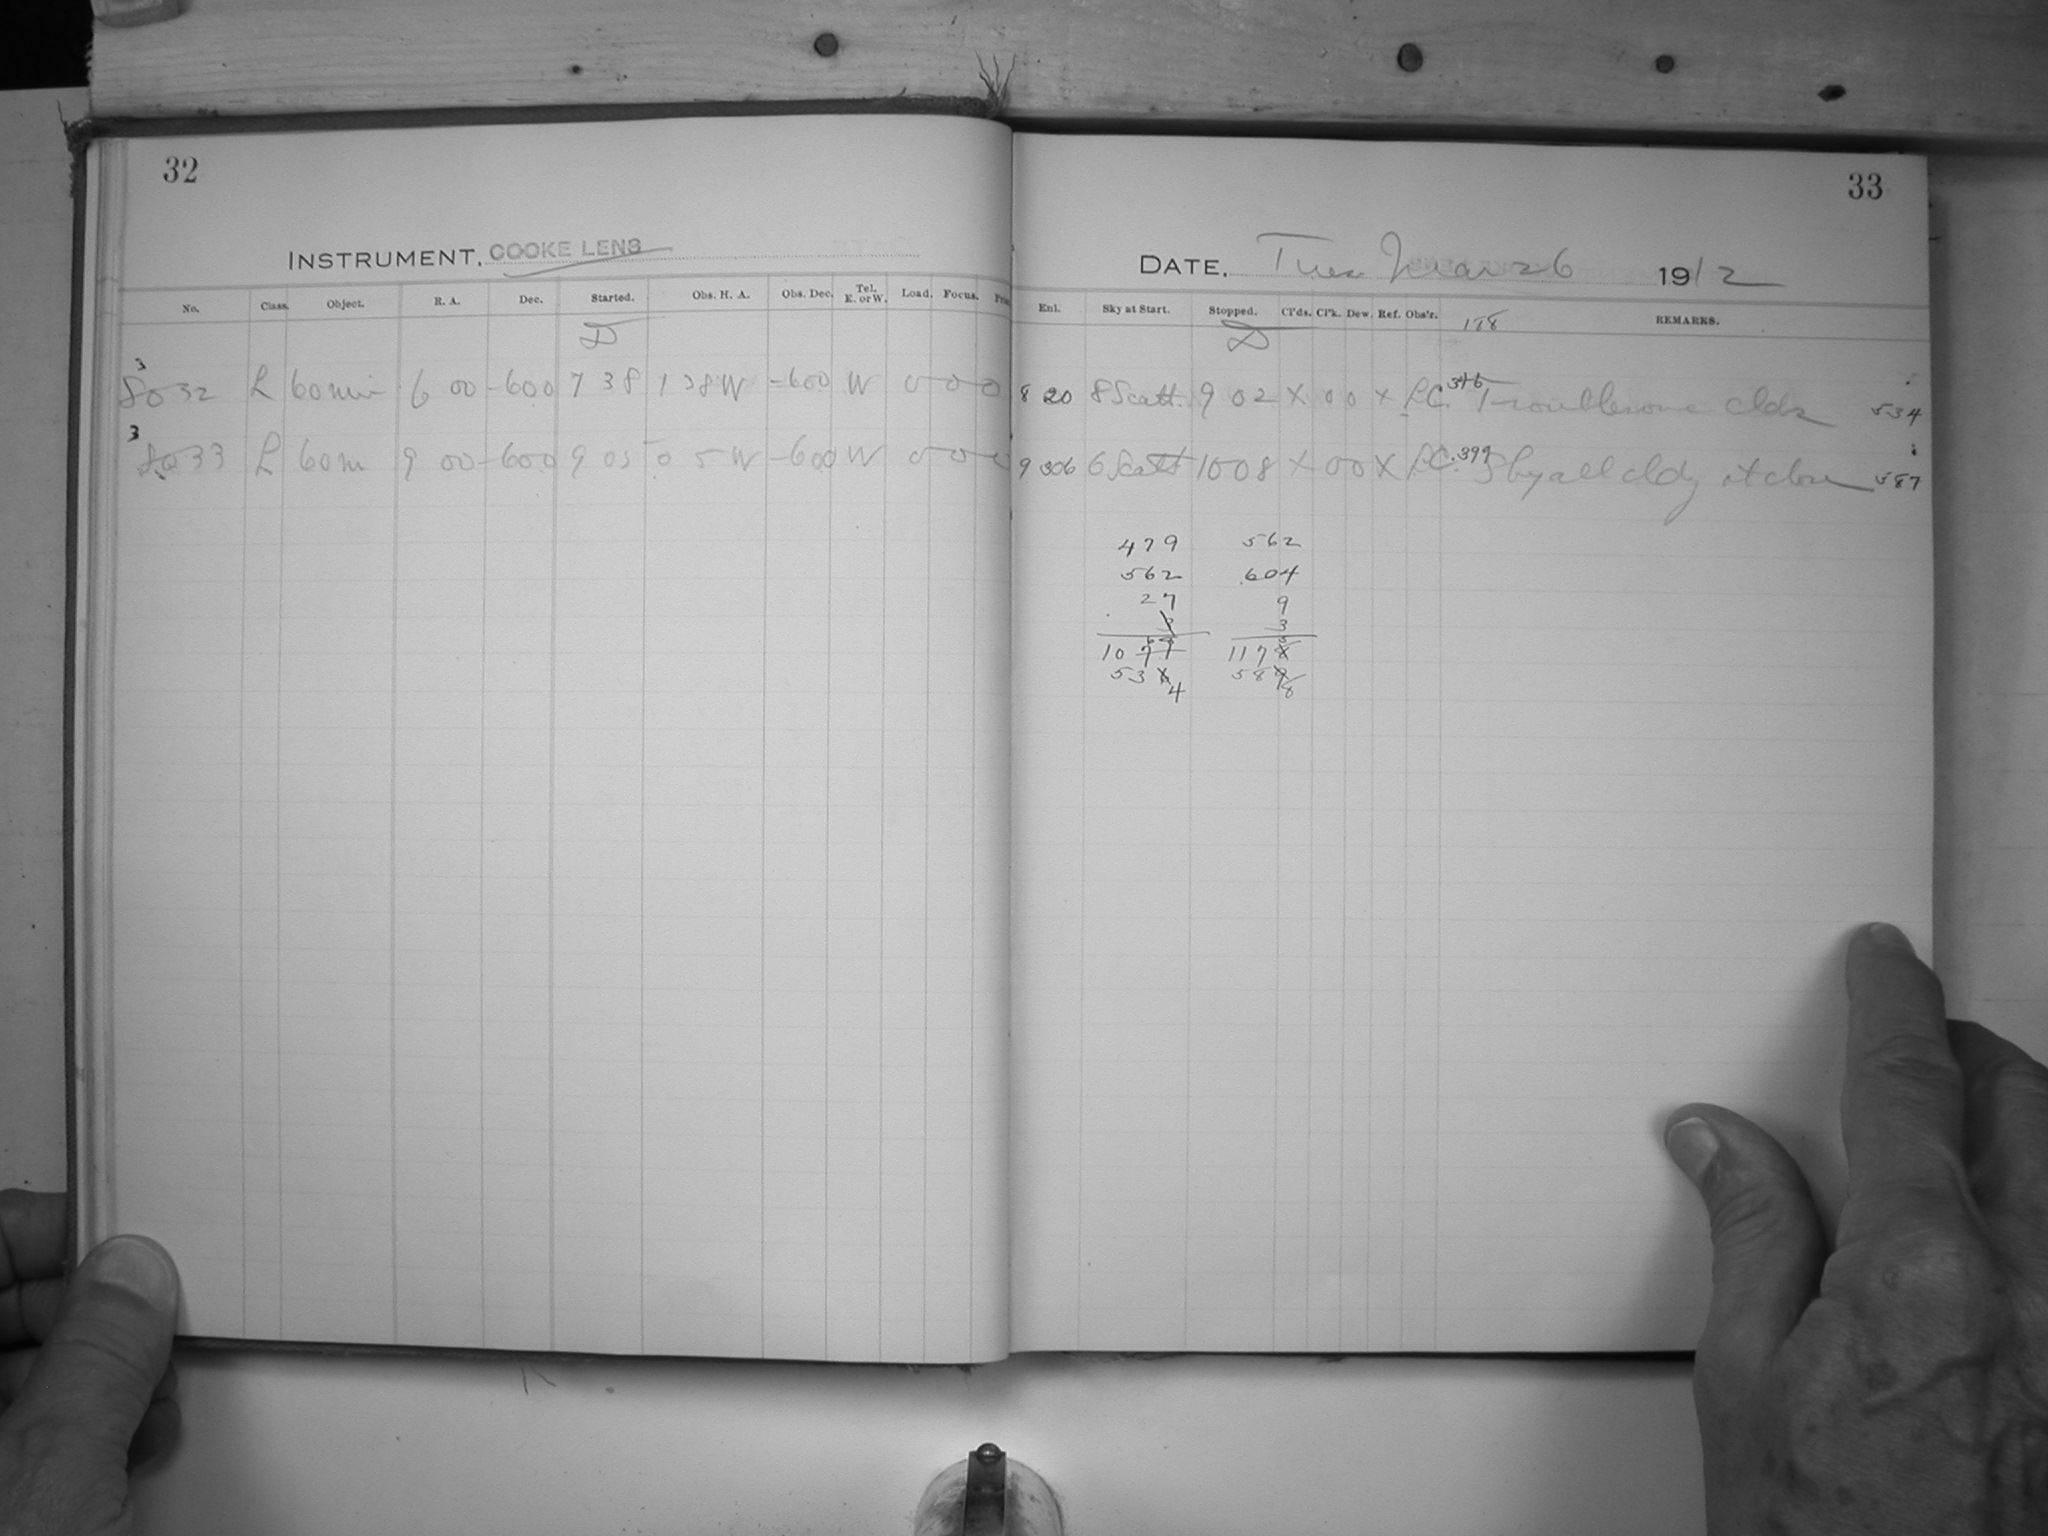 32
INSTRUMENT. COOKE LENS
No. Class. Object. R. A. Dec. Started. Obs. H. A. Obs. Dec. Tel. E. or W. Load. Focus.
D
3
8032 L 60 min 6 00 -600 7 38 1 38 W -600 W 0 0 0
3
8033 L 60 m 9 00 -600 9 05 0 5 W -600 W 0 0 0
33
DATE. Tues Mar 26 1912
Enl. Sky at Start. Stopped. Cl'ds. Cl'k. Dew. Ref. Obs'r. REMARKS.
D
8 20 8 Scatt. 9 02 X 0 0 X L.C. 376 Troublesome clds 534
9 306 6 Scatt 10 08 X 0 0 X L.C. 399 Sky all cldy at close 587
479 562
562 604
27 9
3 3
10 77 117
53 4 58 8